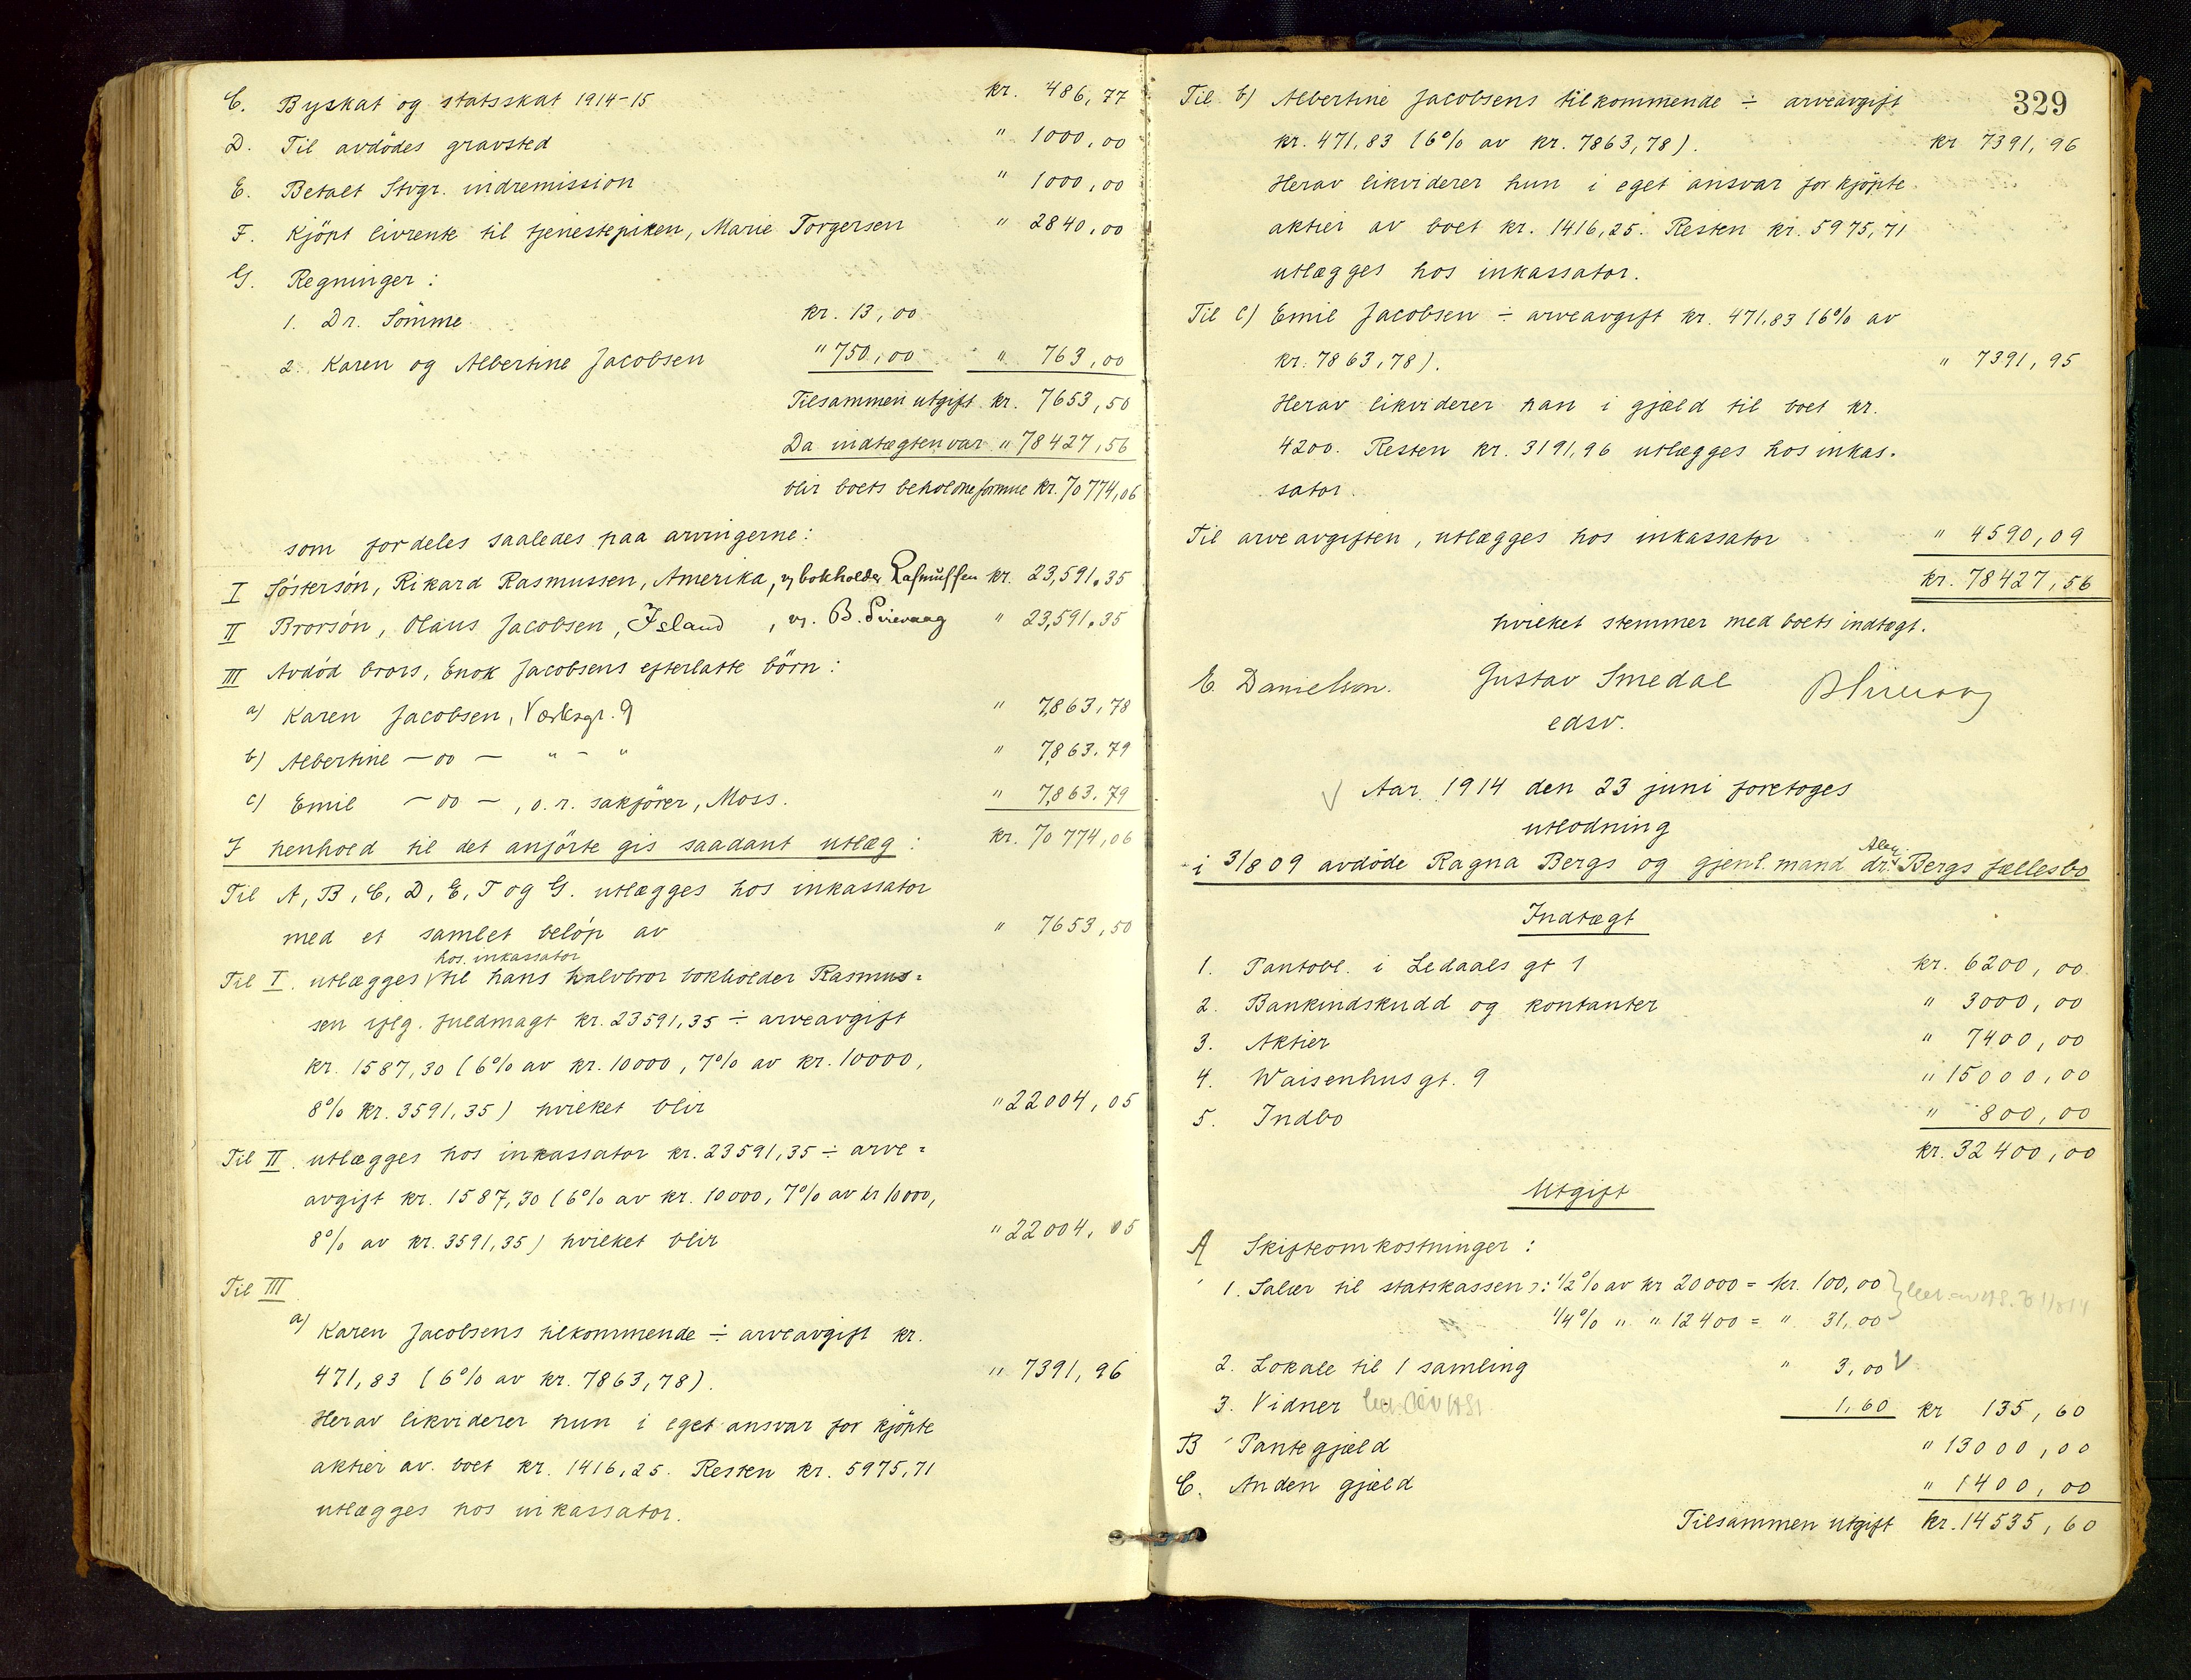 C. Byskat og statsskat 1914-15 kr. 486,77
D. Til avdödes gravsted " 1000,00
E. Betalt Stvgr. indremission " 1000,00
F. Kjöpt livrente til tjenestepiken, Marie Torgersen " 2840,00
G. Regninger:
1. Dr. Sömme kr. 13,00
2. Karen og Albertine Jacobsen " 750,00 " 763,00
Tilsammen utgift kr. 7653,50
Da indtægten var " 78427,56
blir boets beholdne formue kr. 70774,06
som fordeles saaledes paa arvingerne:
I Söstersön, Rikard Rasmussen, Amerika, v/ bokholder Rasmussen kr. 23,591.35
II Brorsön, Olaus Jacobsen, Island, v. B. " 23,591.35
III Avdöd brors, Enok Jacobsens efterlatte börn:
a) Karen Jacobsen, Værksgr. 9 " 7,863,78
b) Albertine - oo - " - " " 7,863.79
c) Emil - oo -, o.r. sakförer, Moss. " 7,863.79
I henhold til det anförte gis saadant utlæg: kr. 70774,06
Til A, B, C, D, E, F og G. utlægges hos inkassator
med et samlet belöp av " 7653,50
hos inkassator
Til I. utlægges til hans halvbror bokholder Rasmus=
sen iflg. fuldmagt kr. 23591,35 ÷ arveavgift
kr. 1587,30 (6% av kr. 10000, 7% av kr. 10000,
8% kr. 3591,35) hvilket blir " 22004,05
Til II. utlægges hos inkassator kr. 23591,35 ÷ arve=
avgift kr. 1587,30 (6% av kr. 10000, 7% av kr 10000,
8% av kr. 3591,35) hvilket blir " 22004,05
Til III
a) Karen Jacobsens tilkommende ÷ arveavgift kr.
471,83 (6% av kr. 7863,78). " 7391,96
Herav likviderer hun i eget ansvar for kjöpte
aktier av boet kr. 1416,25. Resten kr. 5975,71
utlægges hos inkassator.
329
Til b) Albertine Jacobsens tilkommende ÷ arveavgift
kr. 471,83 (6% av kr. 7863,78). kr 7391,96
Herav likviderer hun i eget ansvar for kjöpte
aktier av boet kr. 1416,25. Resten kr. 5975,71
utlægges hos inkassator.
Til c) Emil Jacobsen ÷ arveavgift kr. 471,83 (6% av
kr. 7863,78). " 7391,95
Herav likviderer han i gjæld til boet kr.
4200. Resten kr. 3191,96 utlægges hos inkas-
sator.
Til arveavgiften, utlægges hos inkassator " 4590,09
kr. 78427,56
hvilket stemmer med boets indtægt.
E. Danielsen. Gustav Smedal
edsv.
Aar 1914 den 23 juni foretoges
utlodning
Alex
i 3/8 09 avdöde Ragna Bergs og gjenl. mand dr. Bergs fællesbo
Indtægt
1. Pantobl. i Ledaals gt 1 kr. 6200,00
2. Bankindskudd og kontanter " 3000,00
3. Aktier " 7400,00
4. Waisenhusgt. 9 " 15000,00
5. Indbo " 800,00
kr. 32400,00
Utgift
A Skifteomkostninger:
1. Salær til statskassen: 1/2% av kr 20000 = kr. 100,00
1/4% " " 12400 = " 31,00
2. Lokale til 1 samling " 3,00
3. Vidner 1,60 kr 135,60
B Pantegjæld " 13000,00
C. Anden gjæld " 1400,00
Tilsammen utgift kr. 14535,60